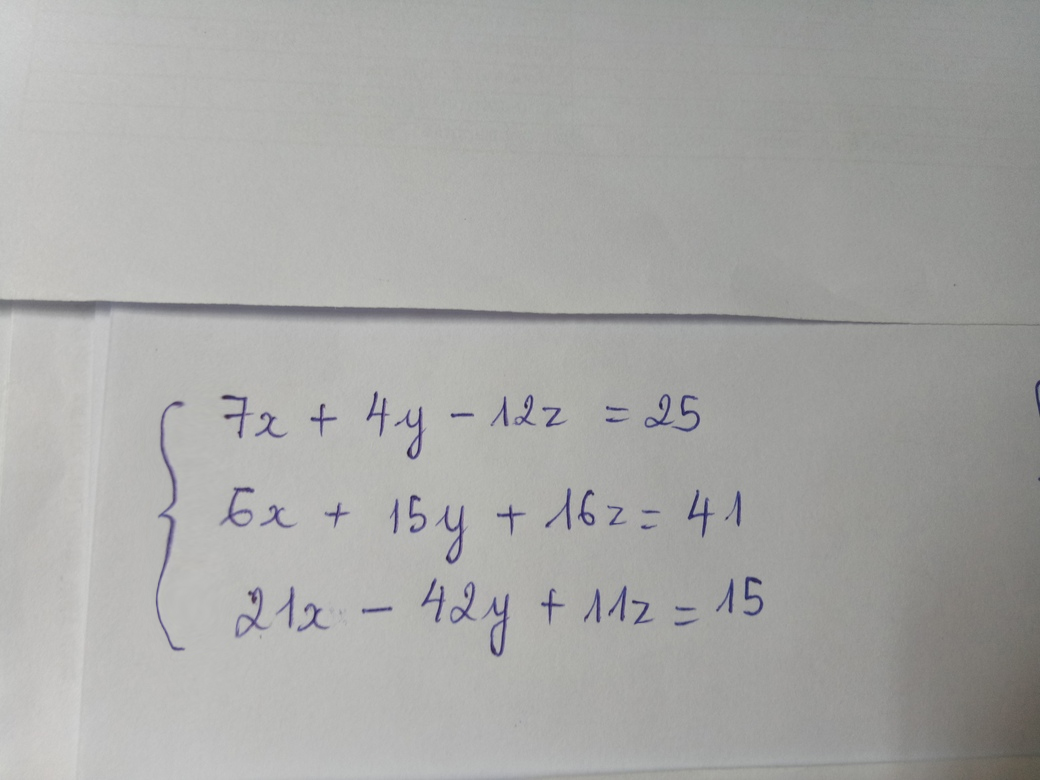 7x + 4y - 12z = 25
6x + 15y + 16z = 41
21x - 42y + 11z = 15